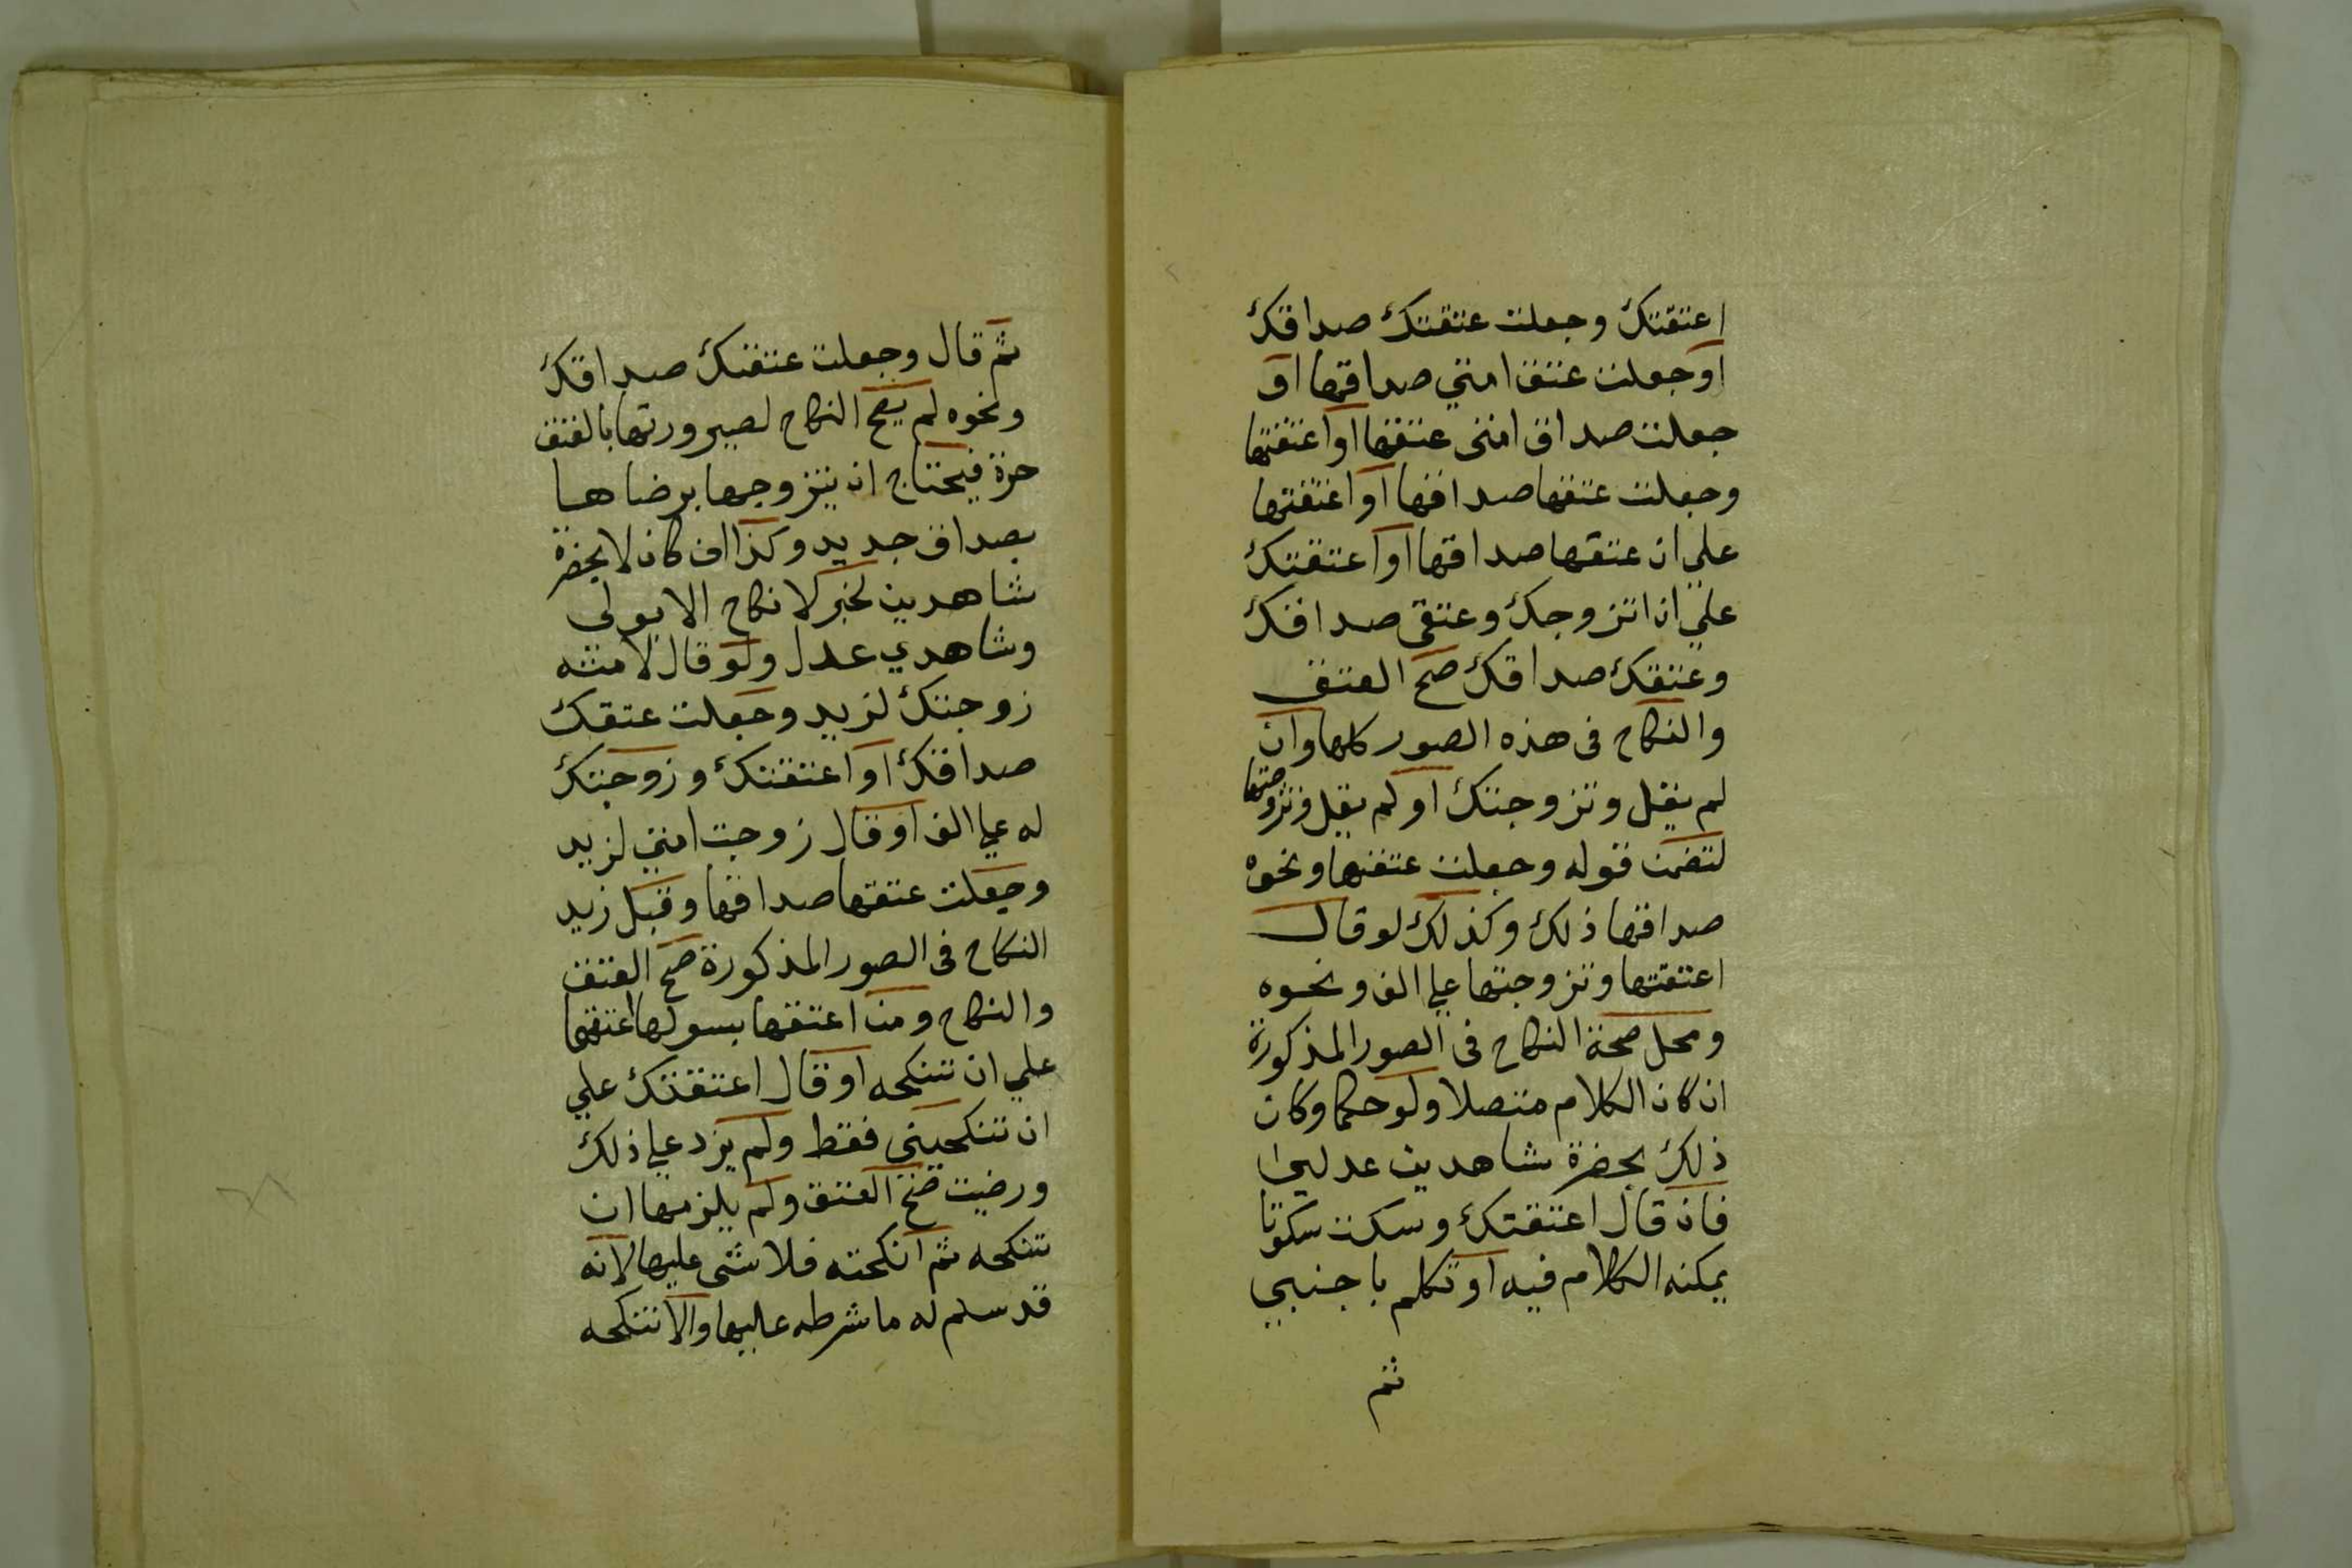 اعتقتك وجعلت عتقتك صداقك
او جعلت عتق امتي صداقها او
جعلت صداق امتى عتقها او اعتقتها
وجعلت عتقها صداقها او اعتقتها
علي ان عتقها صداقها او اعتقتك
علي ان اتزوجك وعتقى صداقك
وعتقك صداقك صح العتق
والنكاح فى هذه الصور كلها وان
لم يقل وتزوجتك او لم يقل وتزوجتها
لتضمن قوله وجعلت عتقها ونحوه
صداقها ذلك وكذلك لو قال
اعتقتها وتزوجتها علي الف ونحوه
ومحل صحة النكاح فى الصور المذكورة
ان كان الكلام متصلا ولو حكما وكان
ذلك بحضرة شاهدين عدلين
فان قال اعتقتك وسكت سكوتا
يمكنه الكلام فيه او تكلم باجنبي
ثم
ثم قال وجعلت عتقتك صداقك
ونحوه لم يصح النكاح لصيرورتها بالعتق
حرة فيحتاج ان يتزوجها برضاها
بصداق جديد وكذا ان كان لا بحضرة
شاهدين لخبر لا نكاح الا بولى
وشاهدي عدل ولو قال لامته
زوجتك لزيد وجعلت عتقك
صداقك او اعتقتك وزوجتك
له علي الف او قال زوجت امتي لزيد
وجعلت عتقها صداقها وقبل زيد
النكاح فى الصور المذكورة صح العتق
والنكاح ومن اعتقها بسولها اعتقها
علي ان تنكحه او قال اعتقتك علي
ان تنكحيني فقط ولم يزد علي ذلك
ورضيت صح العتق ولم يلزمها ان
تنكحه ثم ان نكحته فلا شى عليها لانه
قد سلم له ما شرطه عليها والا تنكحه